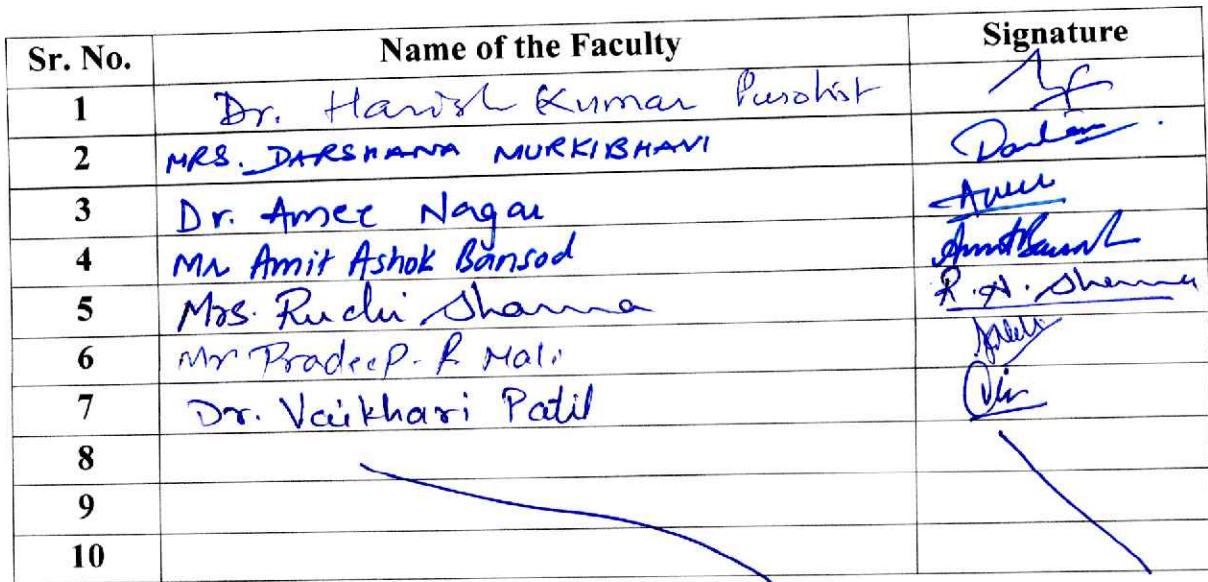 Sr. No. Name of the Faculty Signature
1 Dr. Harish Kumar Purohit
2 MRS. DARSHANA MURKIBHAVI
3 Dr. Amee Nagar
4 Mr Amit Ashok Bansod
5 Mrs. Ruchi Sharma R. A. Sharma
6 Mr Pradeep. R Mali
7 Dr. Vaikhari Patil
8
9
10